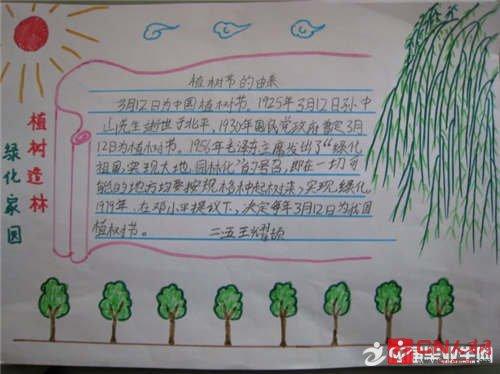 植树节的由来
3月12日为中国植树节。1925年3月12日孙中
山先生逝世于北平,1930年国民党政府暂定3月
12日为植树节。1956年毛泽东主席发出了“绿化
祖国,实现大地、园林化”的号召,即在一切可
能的地方均要按规格种起树来,实现绿化。
1979年,在邓小平提议下,决定每年3月12日为我国
植树节。
二五王
植树造林
绿化家园